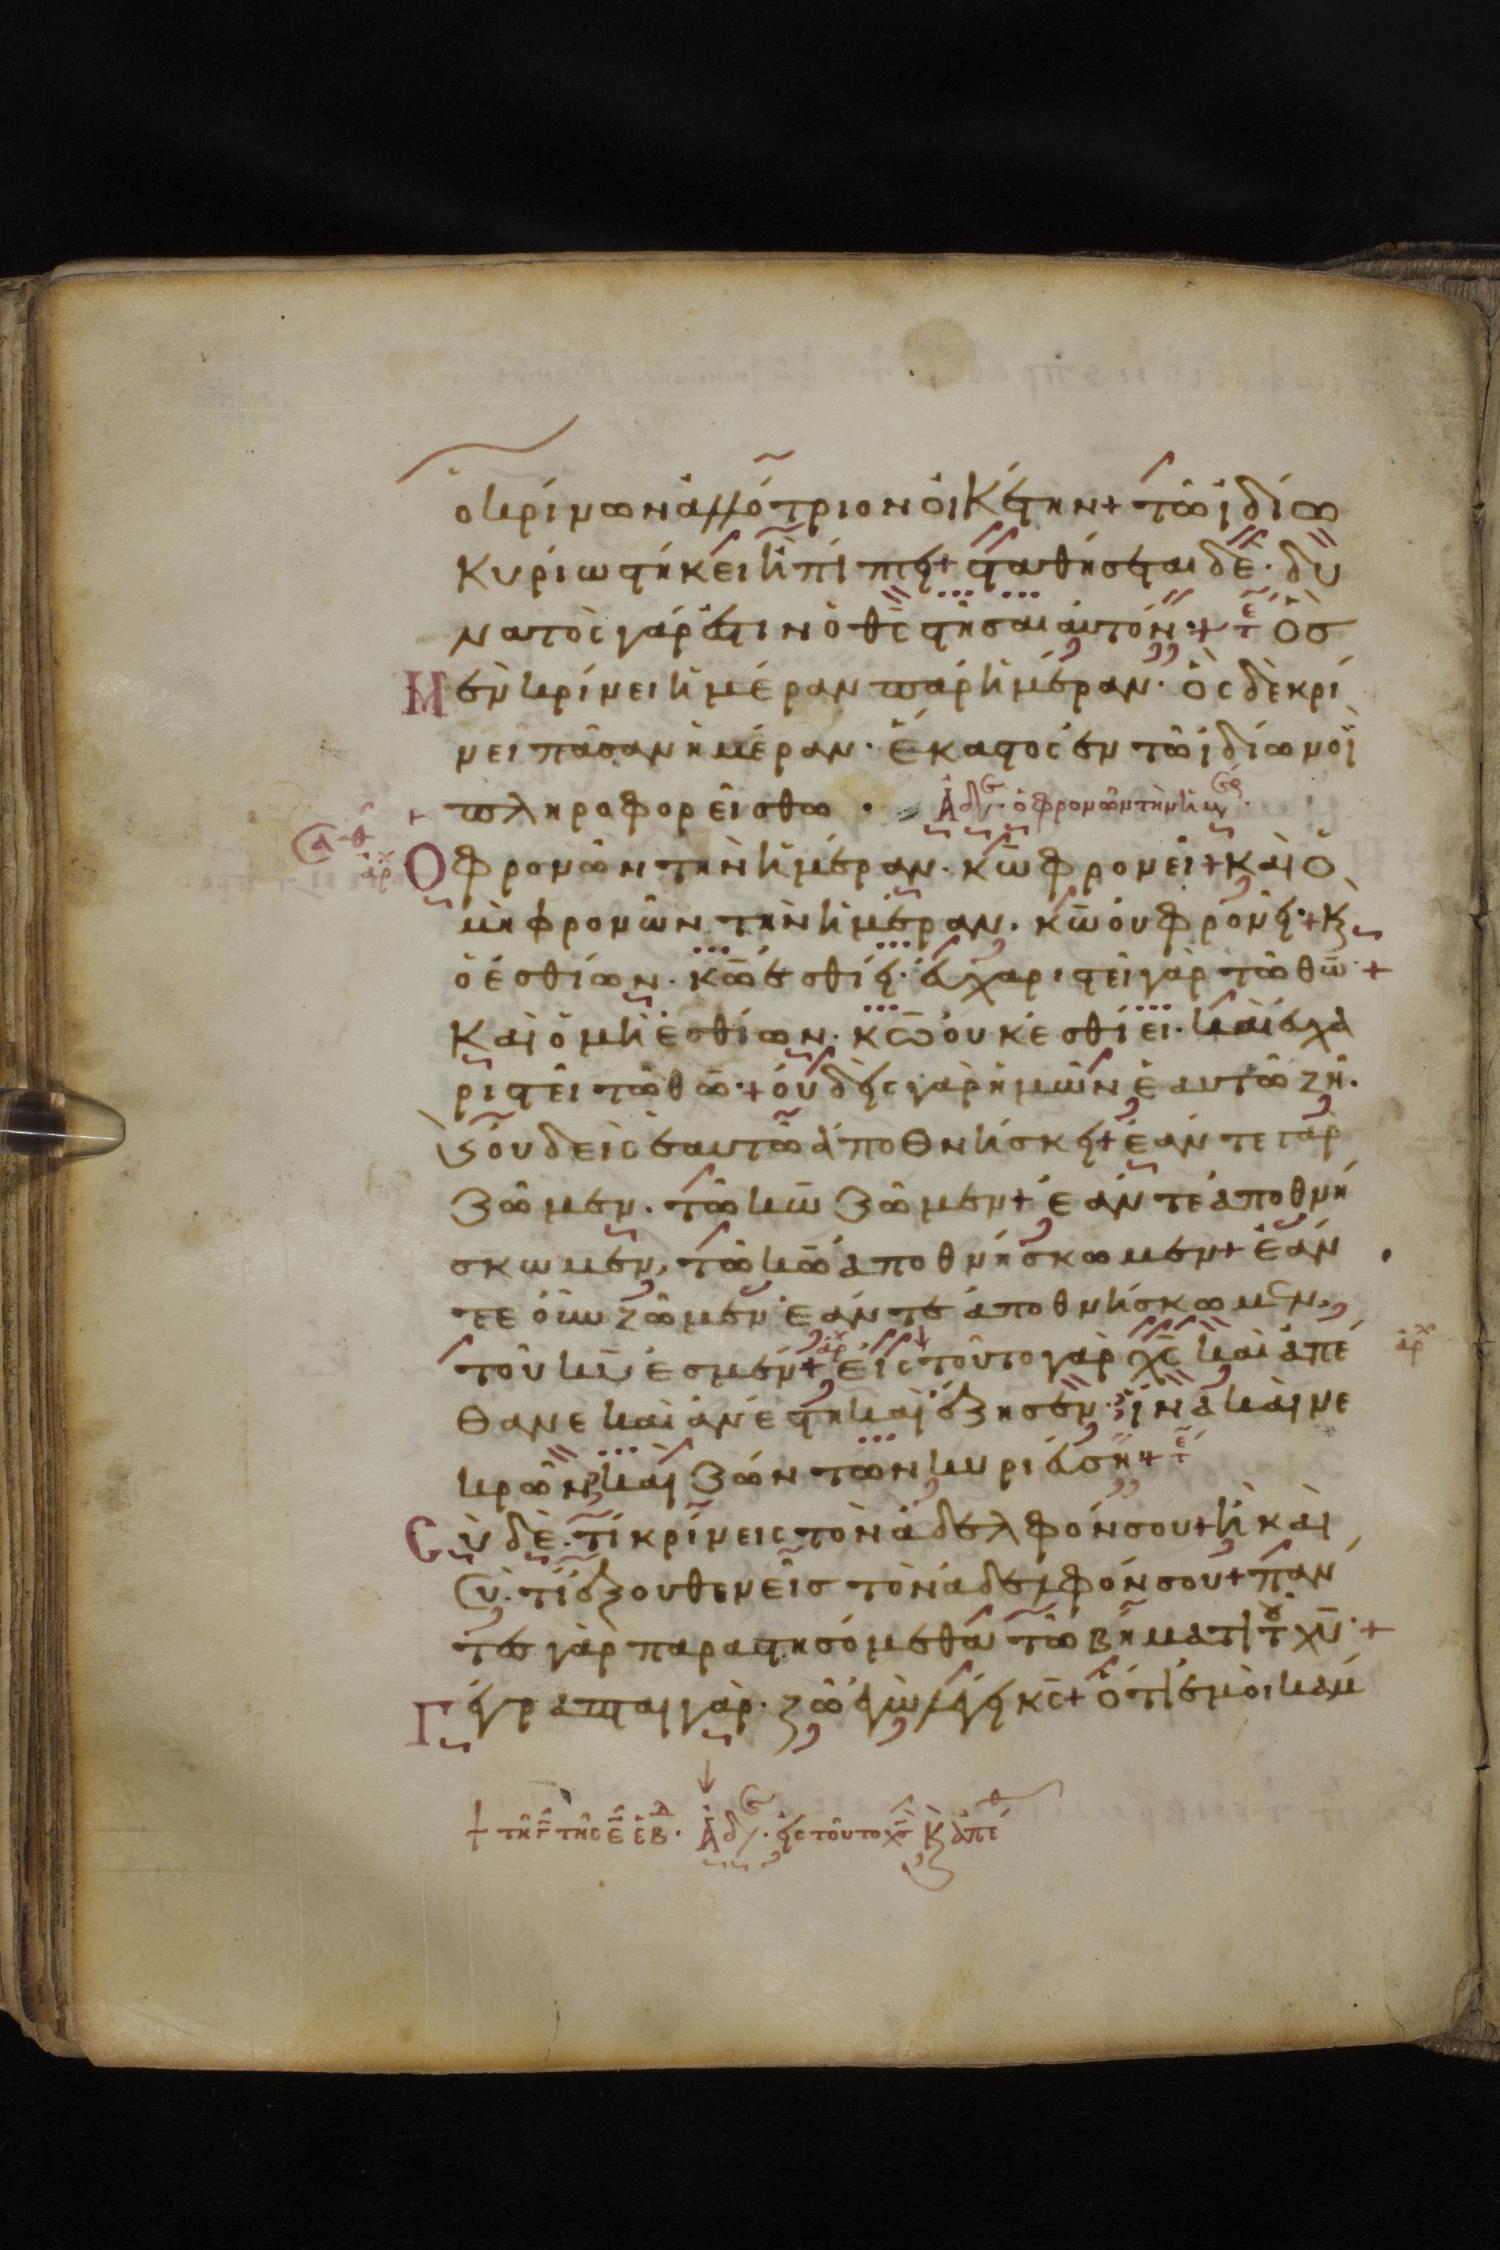 ὁ κρίνων ἀλλότριον οἰκέτην + τῶ ἰδίω
κυρίω στήκει ἢ πίπτει + σταθήσεται δέ · δυ
νατὸς γάρ ἐστιν ὁ θς στῆσαι αὐτόν · + τε Ὃσ
μὲν κρίνει ἡμέραν παρ ἡμέραν · ὃς δὲ κρί
νει πᾶσαν ἡμέραν · ἕκαστος ἐν τῶ ἰδίω νοῒ
πληροφορείσθω · Ἀδε · ὁ φρονῶν τὴν ἡμ
αρχ Ὁ φρονῶν τὴν ἡμέραν · κω φρονεῖ + καὶ ὁ
μὴ φρονῶν τὴν ἡμέραν · κω οὐ φρονεῖ · + κ
ὁ ἐσθίων · κω ἐσθίει · εὐχαριστεῖ γὰρ τῶ θω · +
καὶ ὁ μὴ ἐσθίων · κω οὐκ ἐσθίει · καὶ εὐχα
ριστεῖ τῶ θω · + οὐδεὶς γὰρ ἡμῶν ἑαυτῶ ζῆ ·
κ οὐδεὶς ἑαυτῶ ἀποθνήσκει + ἐάν τε γὰρ
ζῶμεν · τῶ κω ζῶμεν + ἐάν τε ἀποθνή
σκωμεν, τῶ κω ἀποθνήσκωμεν + ἐάν
τε οὖν ζῶμεν ἐάν τε ἀποθνήσκωμεν,
τοῦ κυ ἐσμέν + αρχ εἰς τοῦτο γὰρ χς καὶ ἀπέ αρχ
θανε καὶ ἀνέστη καὶ ἔζησεν · ἵνα καὶ νε
κρῶν καὶ ζώντων κυριεύση + τε
Σὺ δὲ · τί κρίνεις τὸν ἀδελφόν σου + ἢ καὶ
σὺ · τί ἐξουθενεῖσ τὸν ἀδελφόν σου + πάν
τες γὰρ παραστησόμεθα τῶ βήματι τοῦ χυ · +
Γέγραπται γὰρ · ζῶ ἐγὼ λέγει κς + ὅτι ἐμοὶ κάμ
+ τῆ γ τῆς ε εβδ · Ἀδε · εἰς τοῦτο χς κ ἀπέθ